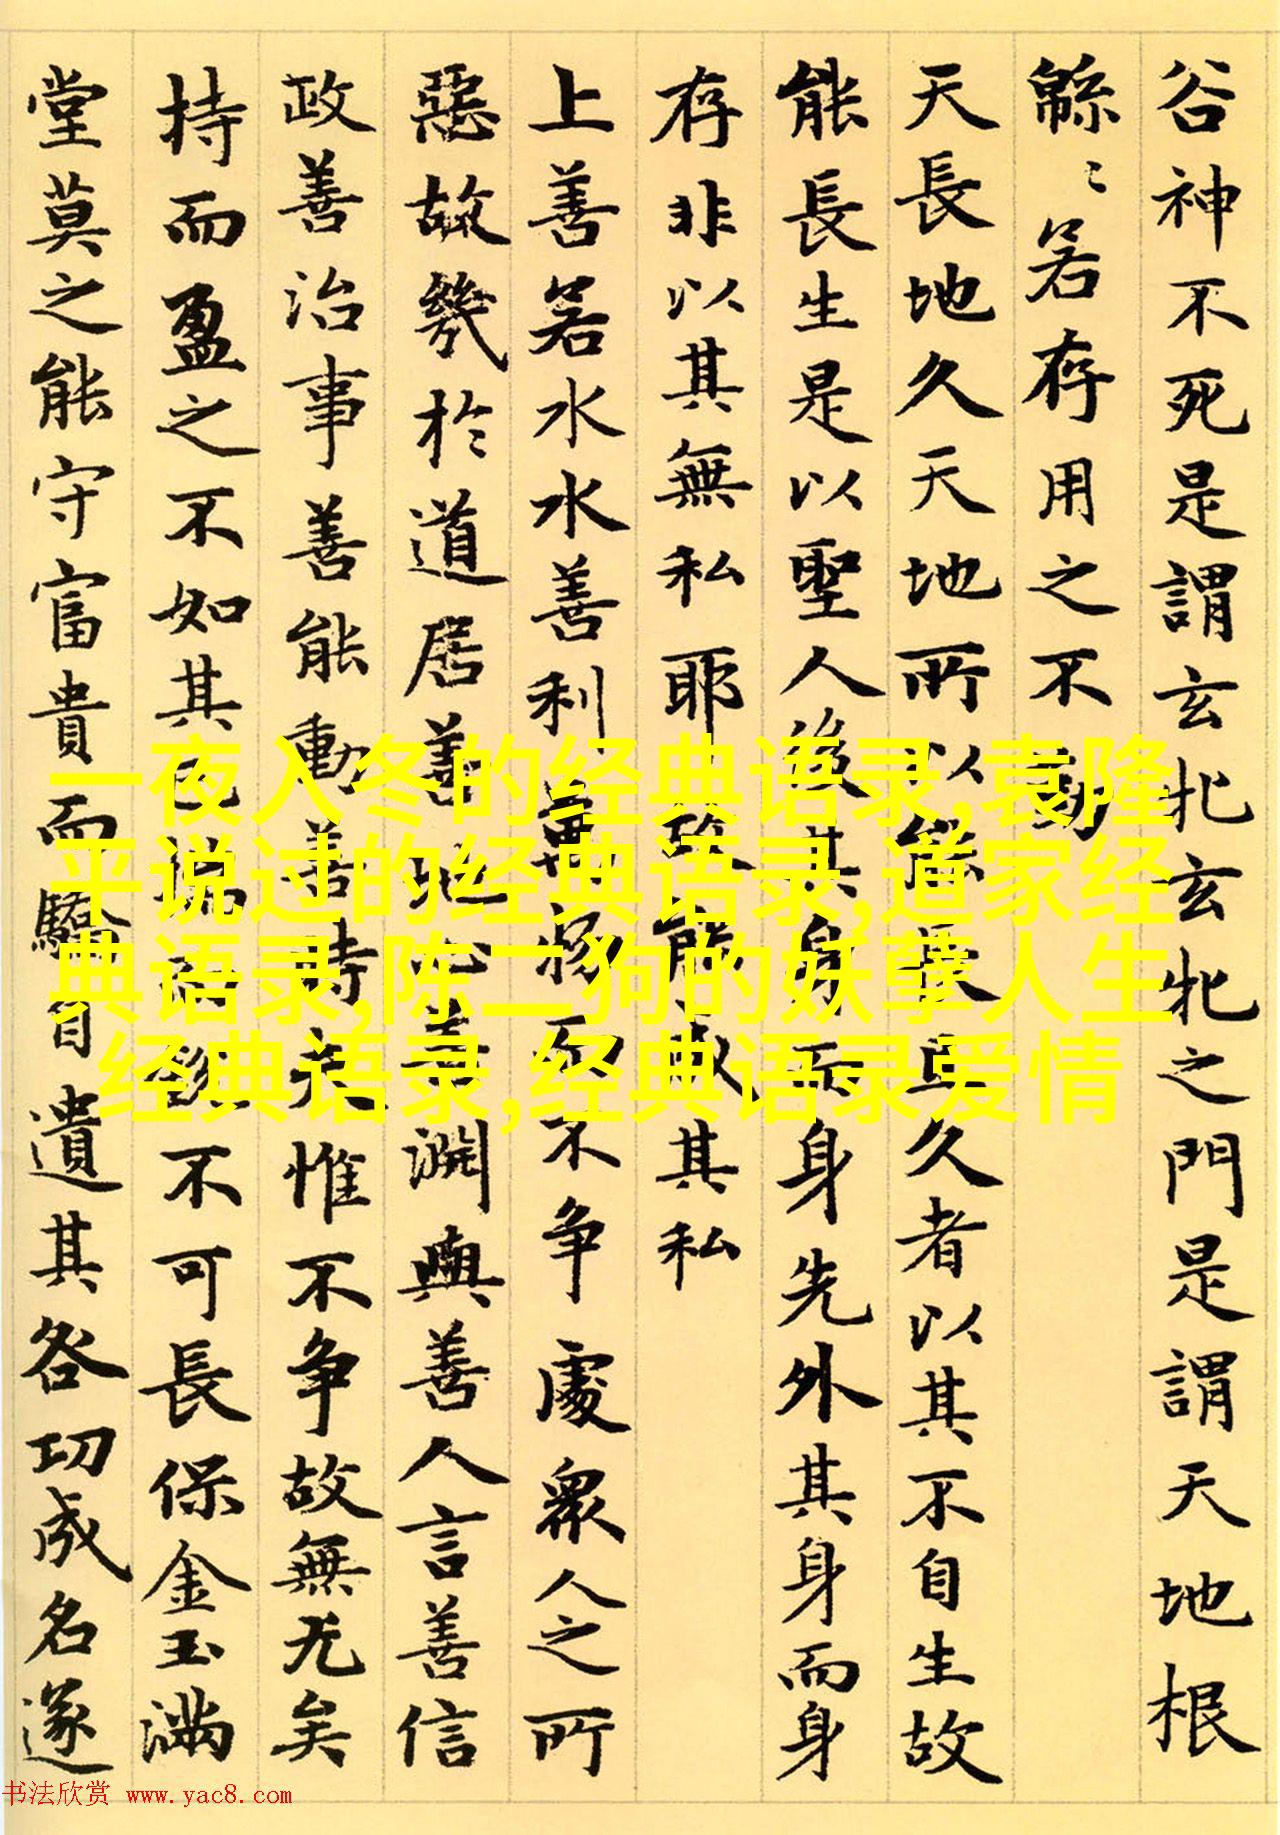 谷神不死是謂玄牝玄牝之門是謂天地根
緜〻若存用之不勤
天長地久天地所以能長且久者以其不自生故
能長生是以聖人後其身而身先外其身而身
存非以其無私耶故能成其私
上善若水水善利萬物不争處眾人之所
惡故幾於道居善地心善淵與善人言善信
政善治事善能動善時夫惟不争故無尤矣
持而盈之不如其已揣而銳不可長保金玉滿
堂莫之能守富貴而驕自遺其咎功成名遂
一夜入冬的经典语录,袁隆
平说过的经典语录,道家经
典语录,陈二狗的妖孽人生
经典语录,经典语录爱情
书法欣赏 www.yac8.com